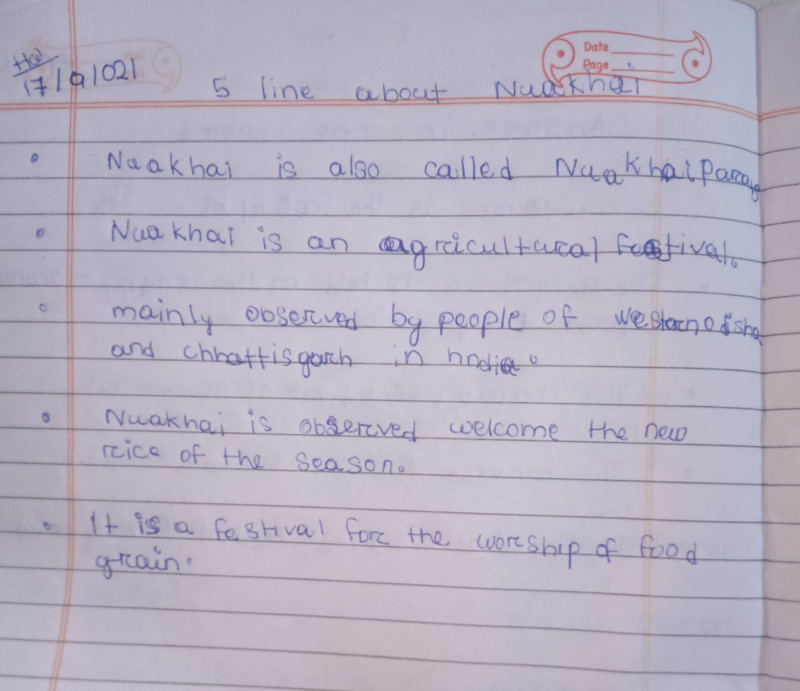 Date
Page
HW
17/9/021
5 line about Nuakhai
Nuakhai is also called Nuakhai Parab
Nuakhai is an agricultural festival.
mainly observed by people of western odisha
and chhattisgarh in India.
Nuakhai is observed welcome the new
rice of the season.
It is a festival for the worship of food
grain.